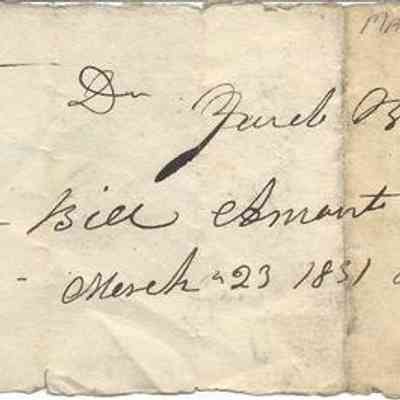 MA
Dr Zureb B
Bill Amount
March 23 1831